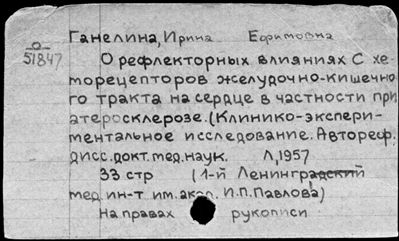 Ганелина, Ирина Ефимовна
О
51847
О рефлекторных влияниях с хе-
морецепторов желудочно-кишечно
го тракта на сердце в частности при
атеросклерозе. (Клинико-экспери-
ментальное исследование. Автореф.
дисс. докт. мед. наук. Л, 1957
33 стр (1-й Ленинградский
мед. ин-т им. акад. И.П. Павлова)
на правах рукописи